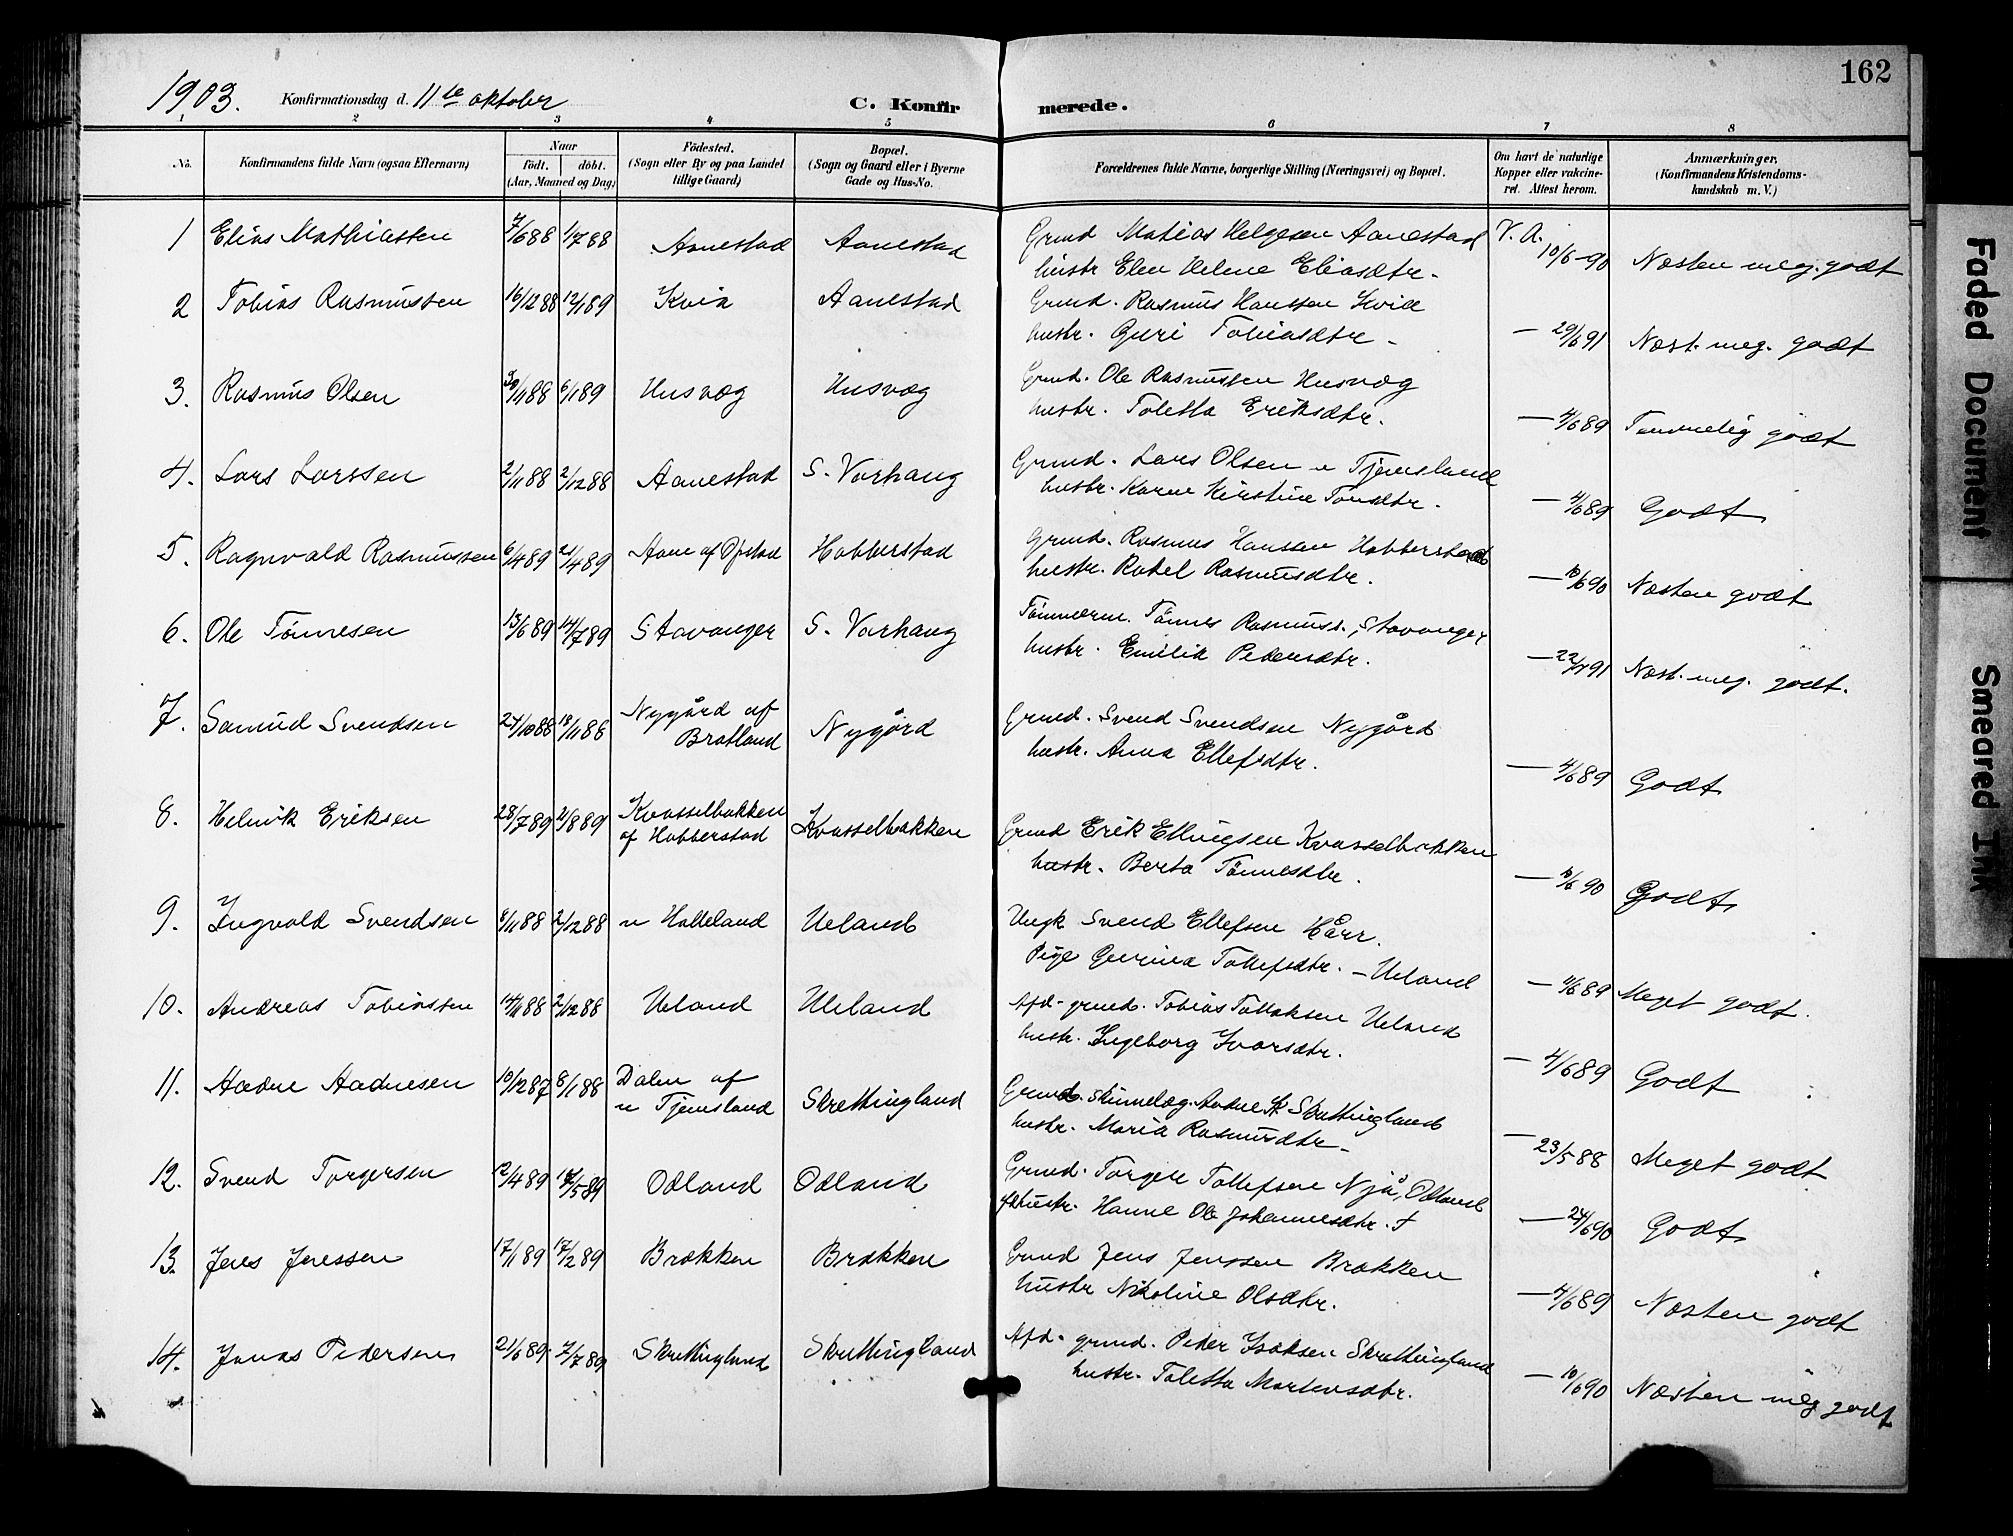 162
1903. Konfirmationsdag d. 11te oktober
C. Konfir merede.
1 2 3 4 5 6 7 8
No. Konfirmandens fulde Navn (ogsaa Efternavn) Naar födt. döbt. (Aar, Maaned og Dag) Födested. (Sogn eller By og paa Landet tillige Gaard) Bopæl. (Sogn og Gaard eller i Byerne Gade og Hus-No. Forældrenes fulde Navne, borgerlige Stilling (Næringsvei) og Bopæl. Om havt de naturlige Kopper eller vakcineret. Attest herom. Anmærkninger. (Konfirmandens Kristendomskundskab m. V.)
1 Elias Mathiassen 7/6 88 1/7 88 Aanestad Aanestad Grmd Matias Helgesen Aanestad V. A. 10/6-90 Næsten meg. godt
hustr Elen Helene Eliasdtr.
2 Tobias Rasmussen 16/12 88 12/1 89 Kvia Aanestad Grmd. Rasmus Hanssen Kvia
hustr. Guri Tobiasdtr. — 29/6 91 Næst. meg. godt
3. Rasmus Olsen 30/11 88 6/1 89 Husvæg Husvæg Grmd. Ole Rasmussen Husvæg
hustr. Toletta Eriksdtr. — 4/6 89 Temmelig godt
4. Lars Larssen 2/11 88 2/12 88 Aanestad S. Varhaug Grmd. Lars Olsen n Tjemsland
hustr. Karen Kirstine Tonsdtr. — 4/6 89 Godt
5. Ragnvald Rasmussen 6/4 89 21/4 89 Aane af Opstad Habberstad Grmd. Rasmus Hansen Habberstad
hustr. Rakel Rasmusdtr. — 10/6 90 Næsten godt
6. Ole Tönnesen 15/6 89 14/7 89 Stavanger S. Varhaug Tömmerm. Tönnes Rasmuss., Stavanger
hustr. Emilie Pedersdtr. — 91 Næst. meg. godt.
7. Samuel Svendsen 24/10 88 18/11 88 Nygård af Bratland Nygård Grmd. Svend Svendsen Nygård
hustr. Anna Ellefsdtr. — 4/6 89 Godt
8. Helmik Eriksen 28/7 89 /8 89 Kvasselbakken af Habberstad Kvasselbakken Grmd Erik Ellingsen Kvasselbakken
hustr. Berta Tönnesdtr. — 10/6 90 Godt
9. Ingvald Svendsen 8/11 88 2/12 88 n Halleland Ueland Ungk Svend Ellefsen Hårr.
Pige Gurina Tollefsdtr. — Ueland — 4/6 89 Meget godt.
10. Andreas Tobiassen 14/11 88 2/12 88 Ueland Ueland Afd. grmd. Tobias Tollaksen Ueland
hustr. Ingeborg Ivarsdtr. — 4/6 89 Godt
11. Aadne Aadnesen 10/12 87 8/1 88 Dalen af n Tjemsland Skrettingland Grmd. skinnelæg. Aadne A Skrettingland
hustr. Maria Rasmusdtr. — 23/5 88 Meget godt
12. Svend Torgersen 12/4 89 /5 89 Odland Odland Grmd. Torger Tollefsen Njå, Odland
hustr. Hanne Ole Johannesdtr. † — 24/6 90 Godt
13. Jens Jenssen 17/1 89 17/2 89 Brækken Brækken Grmd Jens Jenssen Brækken
hustr Nikoline Olsdtr. — 4/6 89 Næsten godt
14. Jonas Pedersen 21/6 89. 7/7 89 Skrettingland Skrettingland Afd. grmd. Peder Isaksen Skrettingland
hustr. Toletta Mortensdtr. — 10/6 90 Næsten meg godt
Faded Document
Smeared Ink